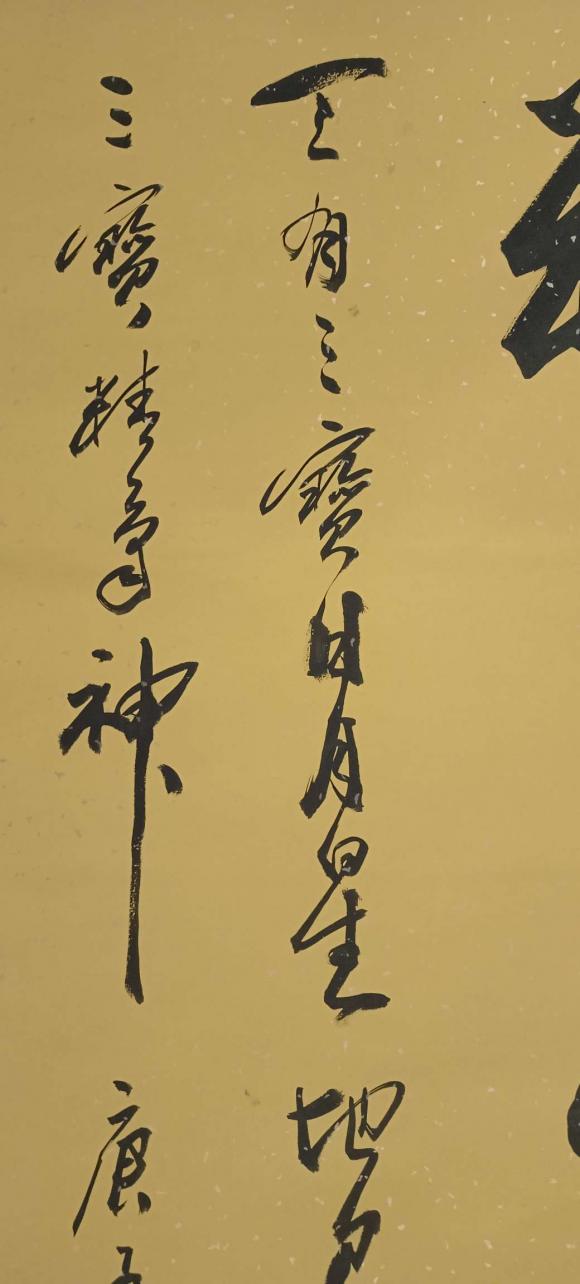 天有三寶日月星 地有
三寶精氣神 庚子